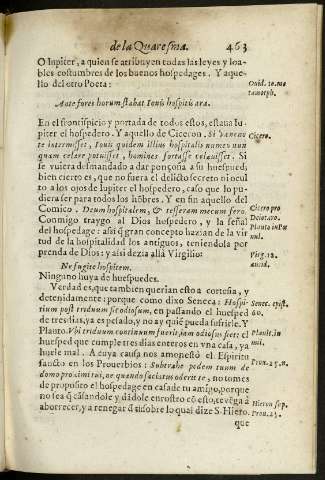 de la Quaresma. 463
O Iupiter, a quien se atribuyen todas las leyes y loa-
bles costumbres de los buenos hospedages. Y aque-
llo del otro Poeta:
Ouid. 10. me
tamorph.
Ante fores horum stabat Iouis hospitis ara.
En el frontispicio y portada de todos estos, estaua Iu-
piter el hospedero. Y aquello de Ciceron. Si Venene
te intermisset, Iouis quidem illius hospitalis numen nun
Cicero.
quam celare potuisset, homines fortasse celauisset. Si
le vuiera desmandado a dar ponçoña a su huesped,
bien cierto es, que no fuera el delicto secreto ni ocul
to a los ojos de Iupiter el hospedero, caso que lo pu-
diera ser para todos los hõbres. Y en fin aquello del
Comico. Deum hospitalem, & tesseram mecum fero.
Cicero pro
Conmigo traygo al Dios hospedero, y la señal
Deiotaro.
del hospedage: assi q̃ gran concepto hazian de la vir
Plauto in Pœ
nul.
tud de la hospitalidad los antiguos, teniendola por
prenda de Dios: y assi dezia allà Virgilio:
Virg. 12.
æneid.
Ne fugite hospitem.
Ninguno huya de huespedes.
Verdad es, que tambien querian esto a cortesia, y
detenidamente: porque como dixo Seneca: Hospi-
Senec. epist.
tium post triduum fit odiosum, en passando el huesped
60.
de tres dias, ya es pesado, y no ay quiẽ pueda sufrirle. Y
Plauto. Vbi triduum continuum fuerit, iam odiosus fiet: el
Plaut. in
mil.
huesped que cumple tres dias enteros en vna casa, ya
huele mal. A cuya causa nos amonestò el Espiritu
sancto en los Prouerbios: Subtrahe pedem tuum de
Prou. 25. n.
domo proximi tui, ne quando satiatus oderit te, no tomes
de proposito el hospedage en casa de tu amigo, porque
no sea q̃ cãsandole y dãdole en rostro cõ esto, te vẽga à
aborrecer, y a renegar d̃ ti: sobre lo qual dize S. Hiero.
Hieron sup.
Prou. 25.
que